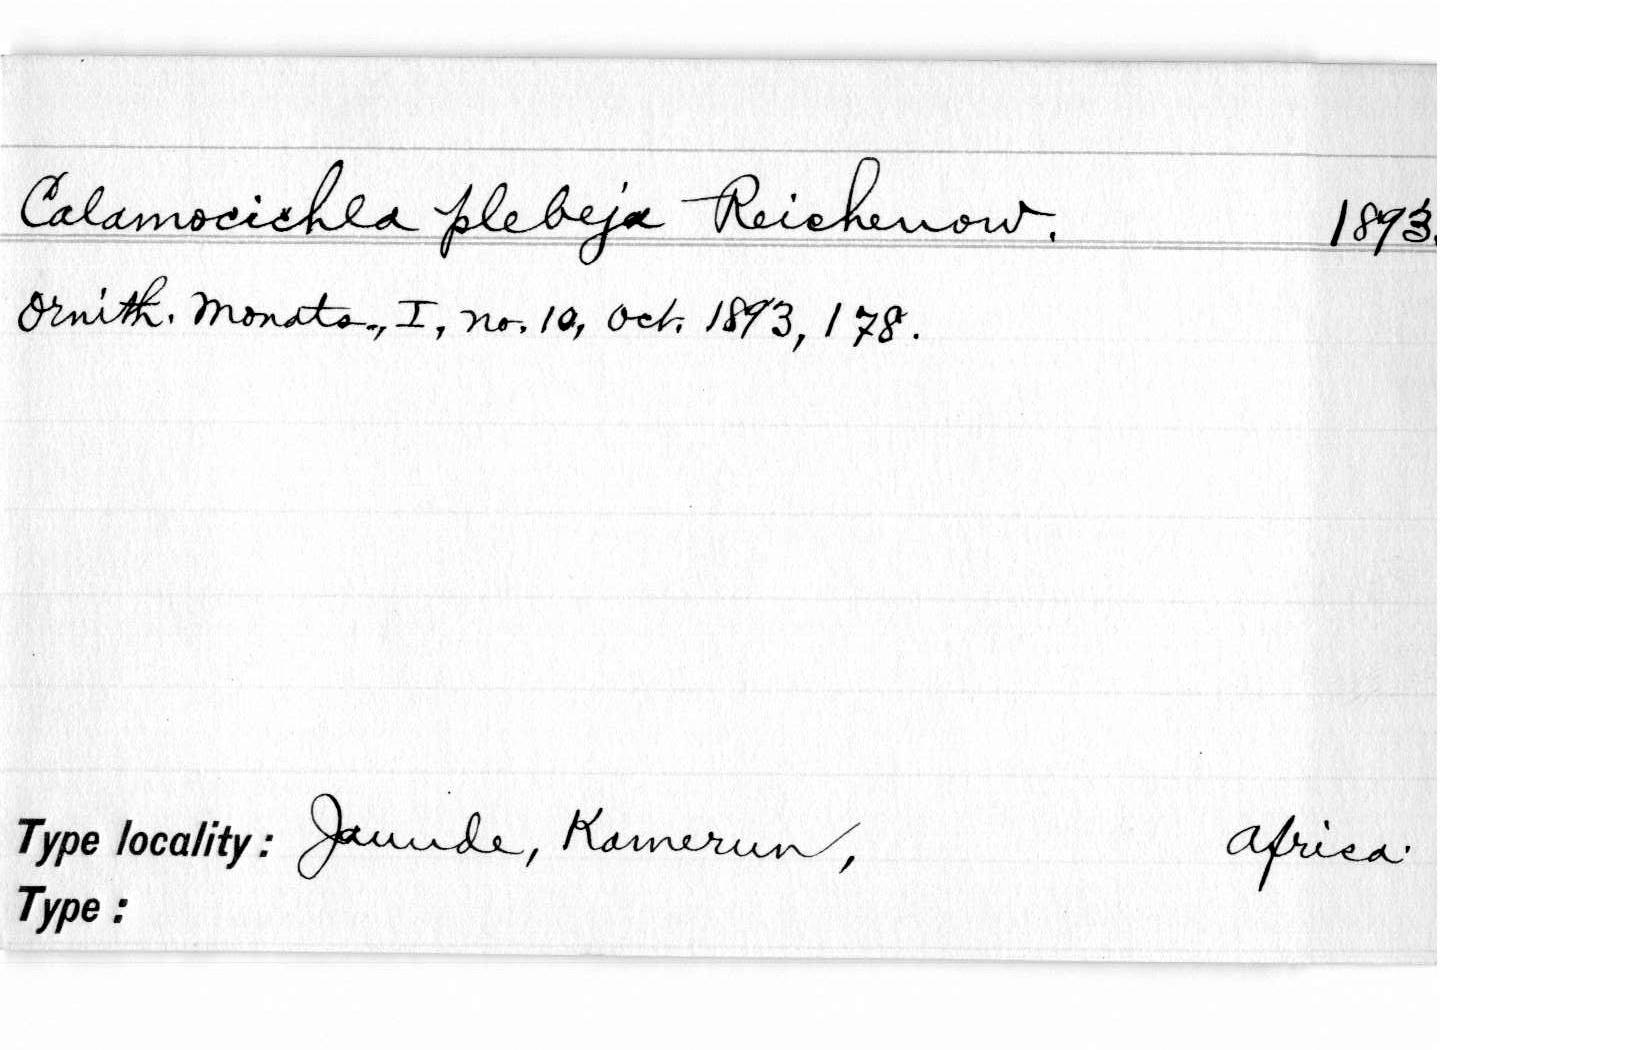 Calamocichla plebeja Reichenow. 1893.
Ornith. Monats., I, no. 10, Oct. 1893, 178.
Type locality: Jaunde, Kamerun, Africa.
Type: